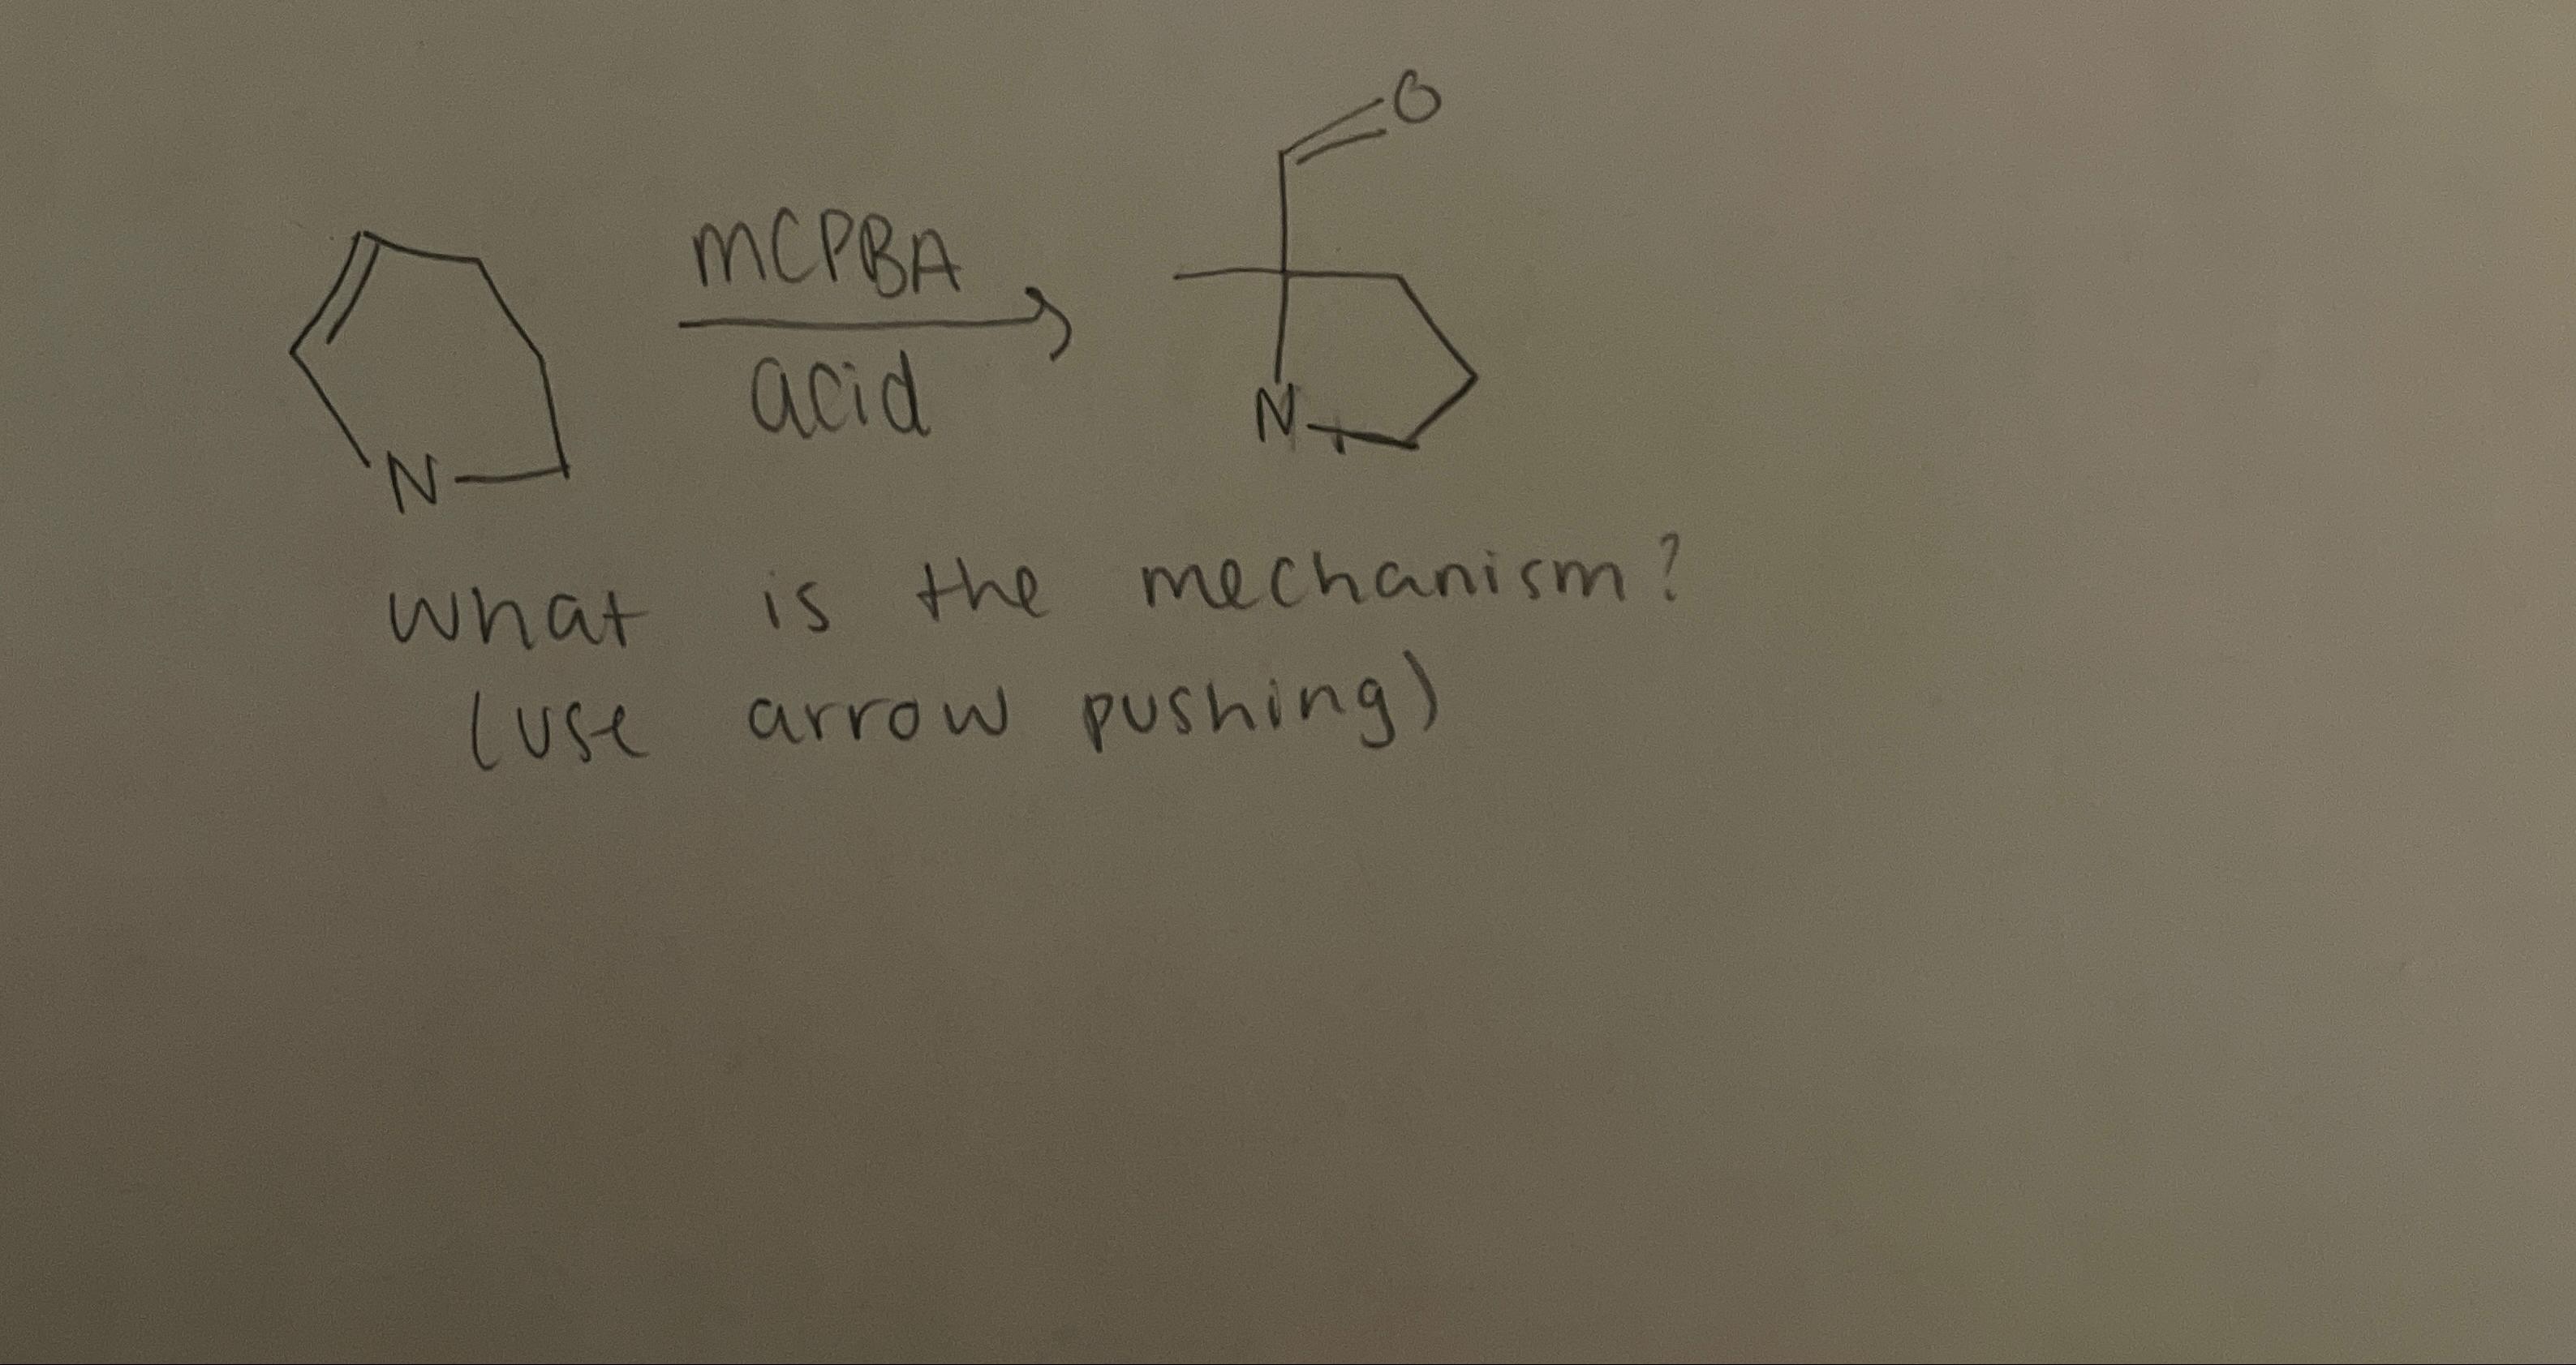 O
mCPBA
acid
N
N
what is the mechanism?
(use arrow pushing)